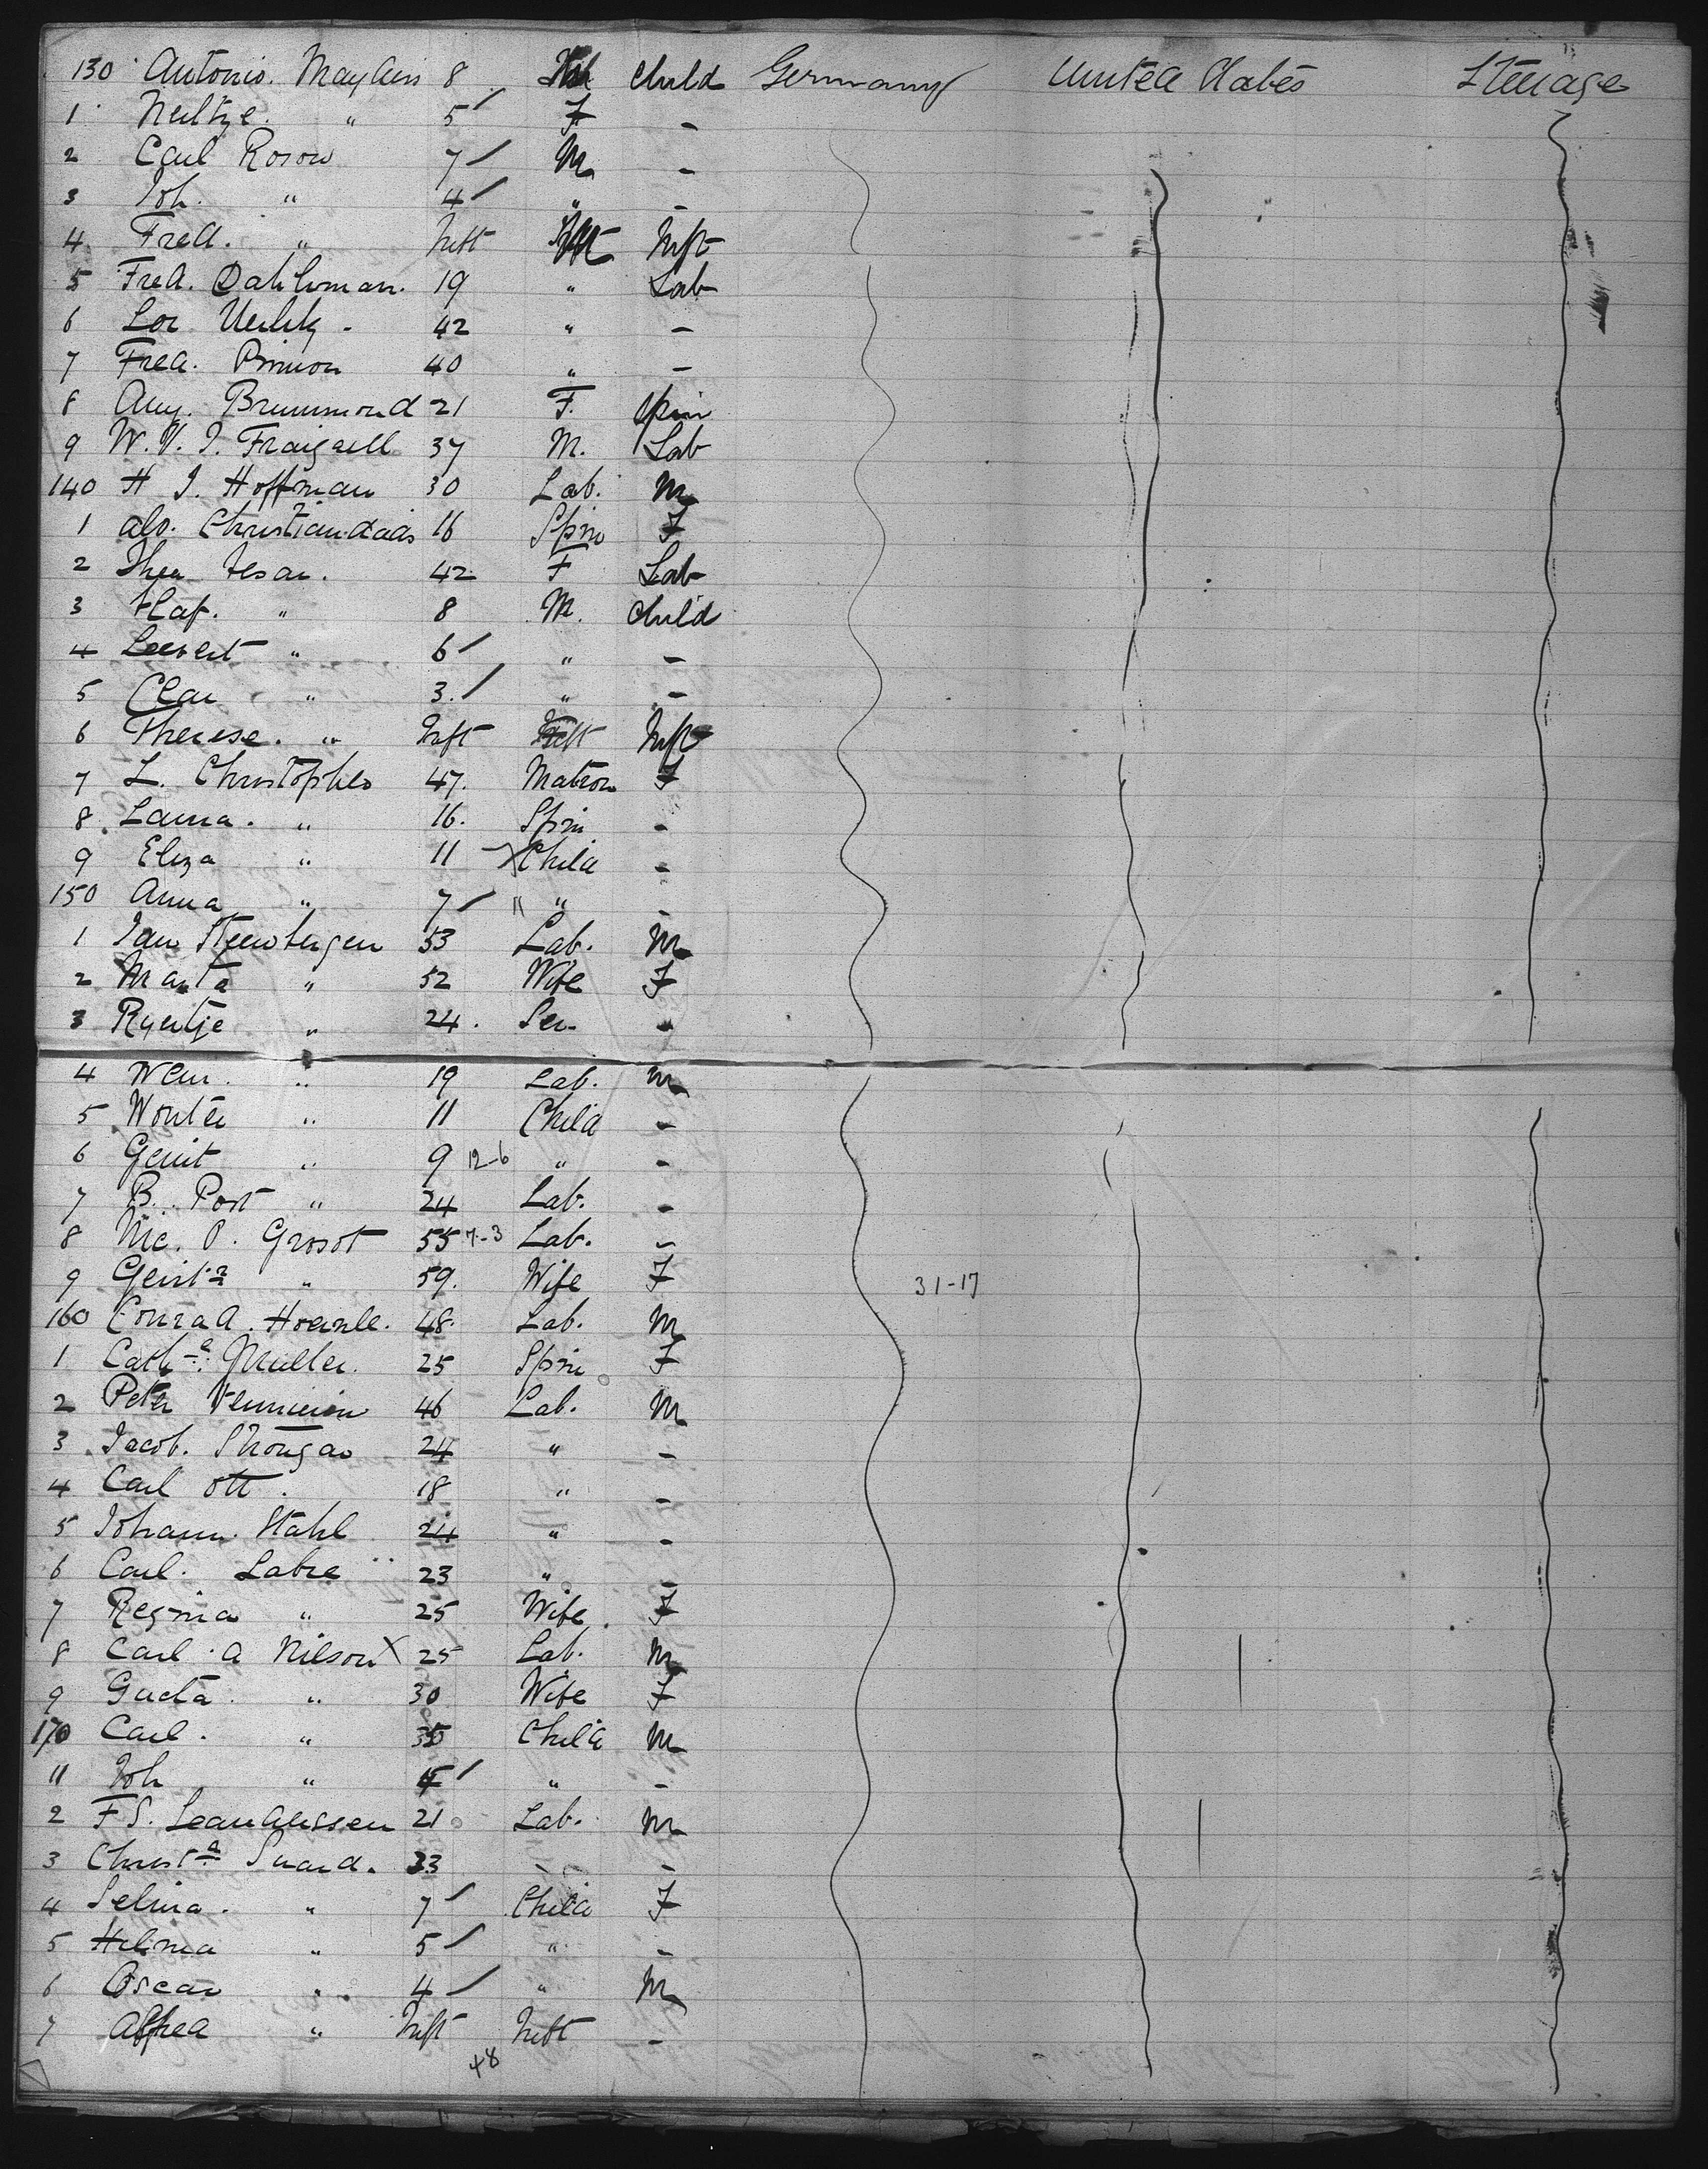 130 Antonio. 8 Child Germany United States Steerage
1 Neeltze. " 5 F -
2 Carl Rosow 7 M -
3 Joh. " 4 " -
4 Fred. " Inft Inft
5 Fred. Dahlvman. 19 " Lab
6 Lor 42 " -
7 Fred. 40 " -
8 Aug. Brummond 21 F. Spin
9 W. V. J. 37 M. Lab
140 H J. Hoffman 30 Lab. M
1 16 Spin F
2 Thea Tesar. 42 F Lab
3 " 8 M. Child
4 " 6 " -
5 Clar " 3. " -
6 Therese. " Inft Inft Inft
7 L. Christopher 47. Matron F
8 Laura. " 16. Spin -
9 Eliza " 11 X Child -
150 Anna " 7 " " -
1 Jan Steenbergen 53 Lab. M
2 Marta " 52 Wife F
3 Ryertje " 24. Ser. -
4 Wem. " 19 Lab. M
5 Wouter " 11 Child -
6 Gerrit " 9 12-6 " -
7 B. Post " 24 Lab. -
8 Nic. P. Groot 55 7-3 Lab. -
9 " 59. Wife F 31-17
160 Conrad. Hoernle. 48. Lab. M
1 Cath-a Muller. 25 Spin F
2 Peter 46 Lab. M
3 Jacob. 24 " -
4 Carl Ott. 18 " -
5 Johann. Stahl 24 " -
6 Carl. Labre 23 " -
7 Regina " 25 Wife F
8 Carl. A Nilson X 25 Lab. M
9 " 30 Wife F
170 Carl. " Child M
11 Joh " " -
2 F S. 21 Lab. M
3 Christ-a Suard. 33 - -
4 Selma. " 7 Child F
5 Hilma " 5 " -
6 Oscar " 4 " M
7 " Inft Inft -
48